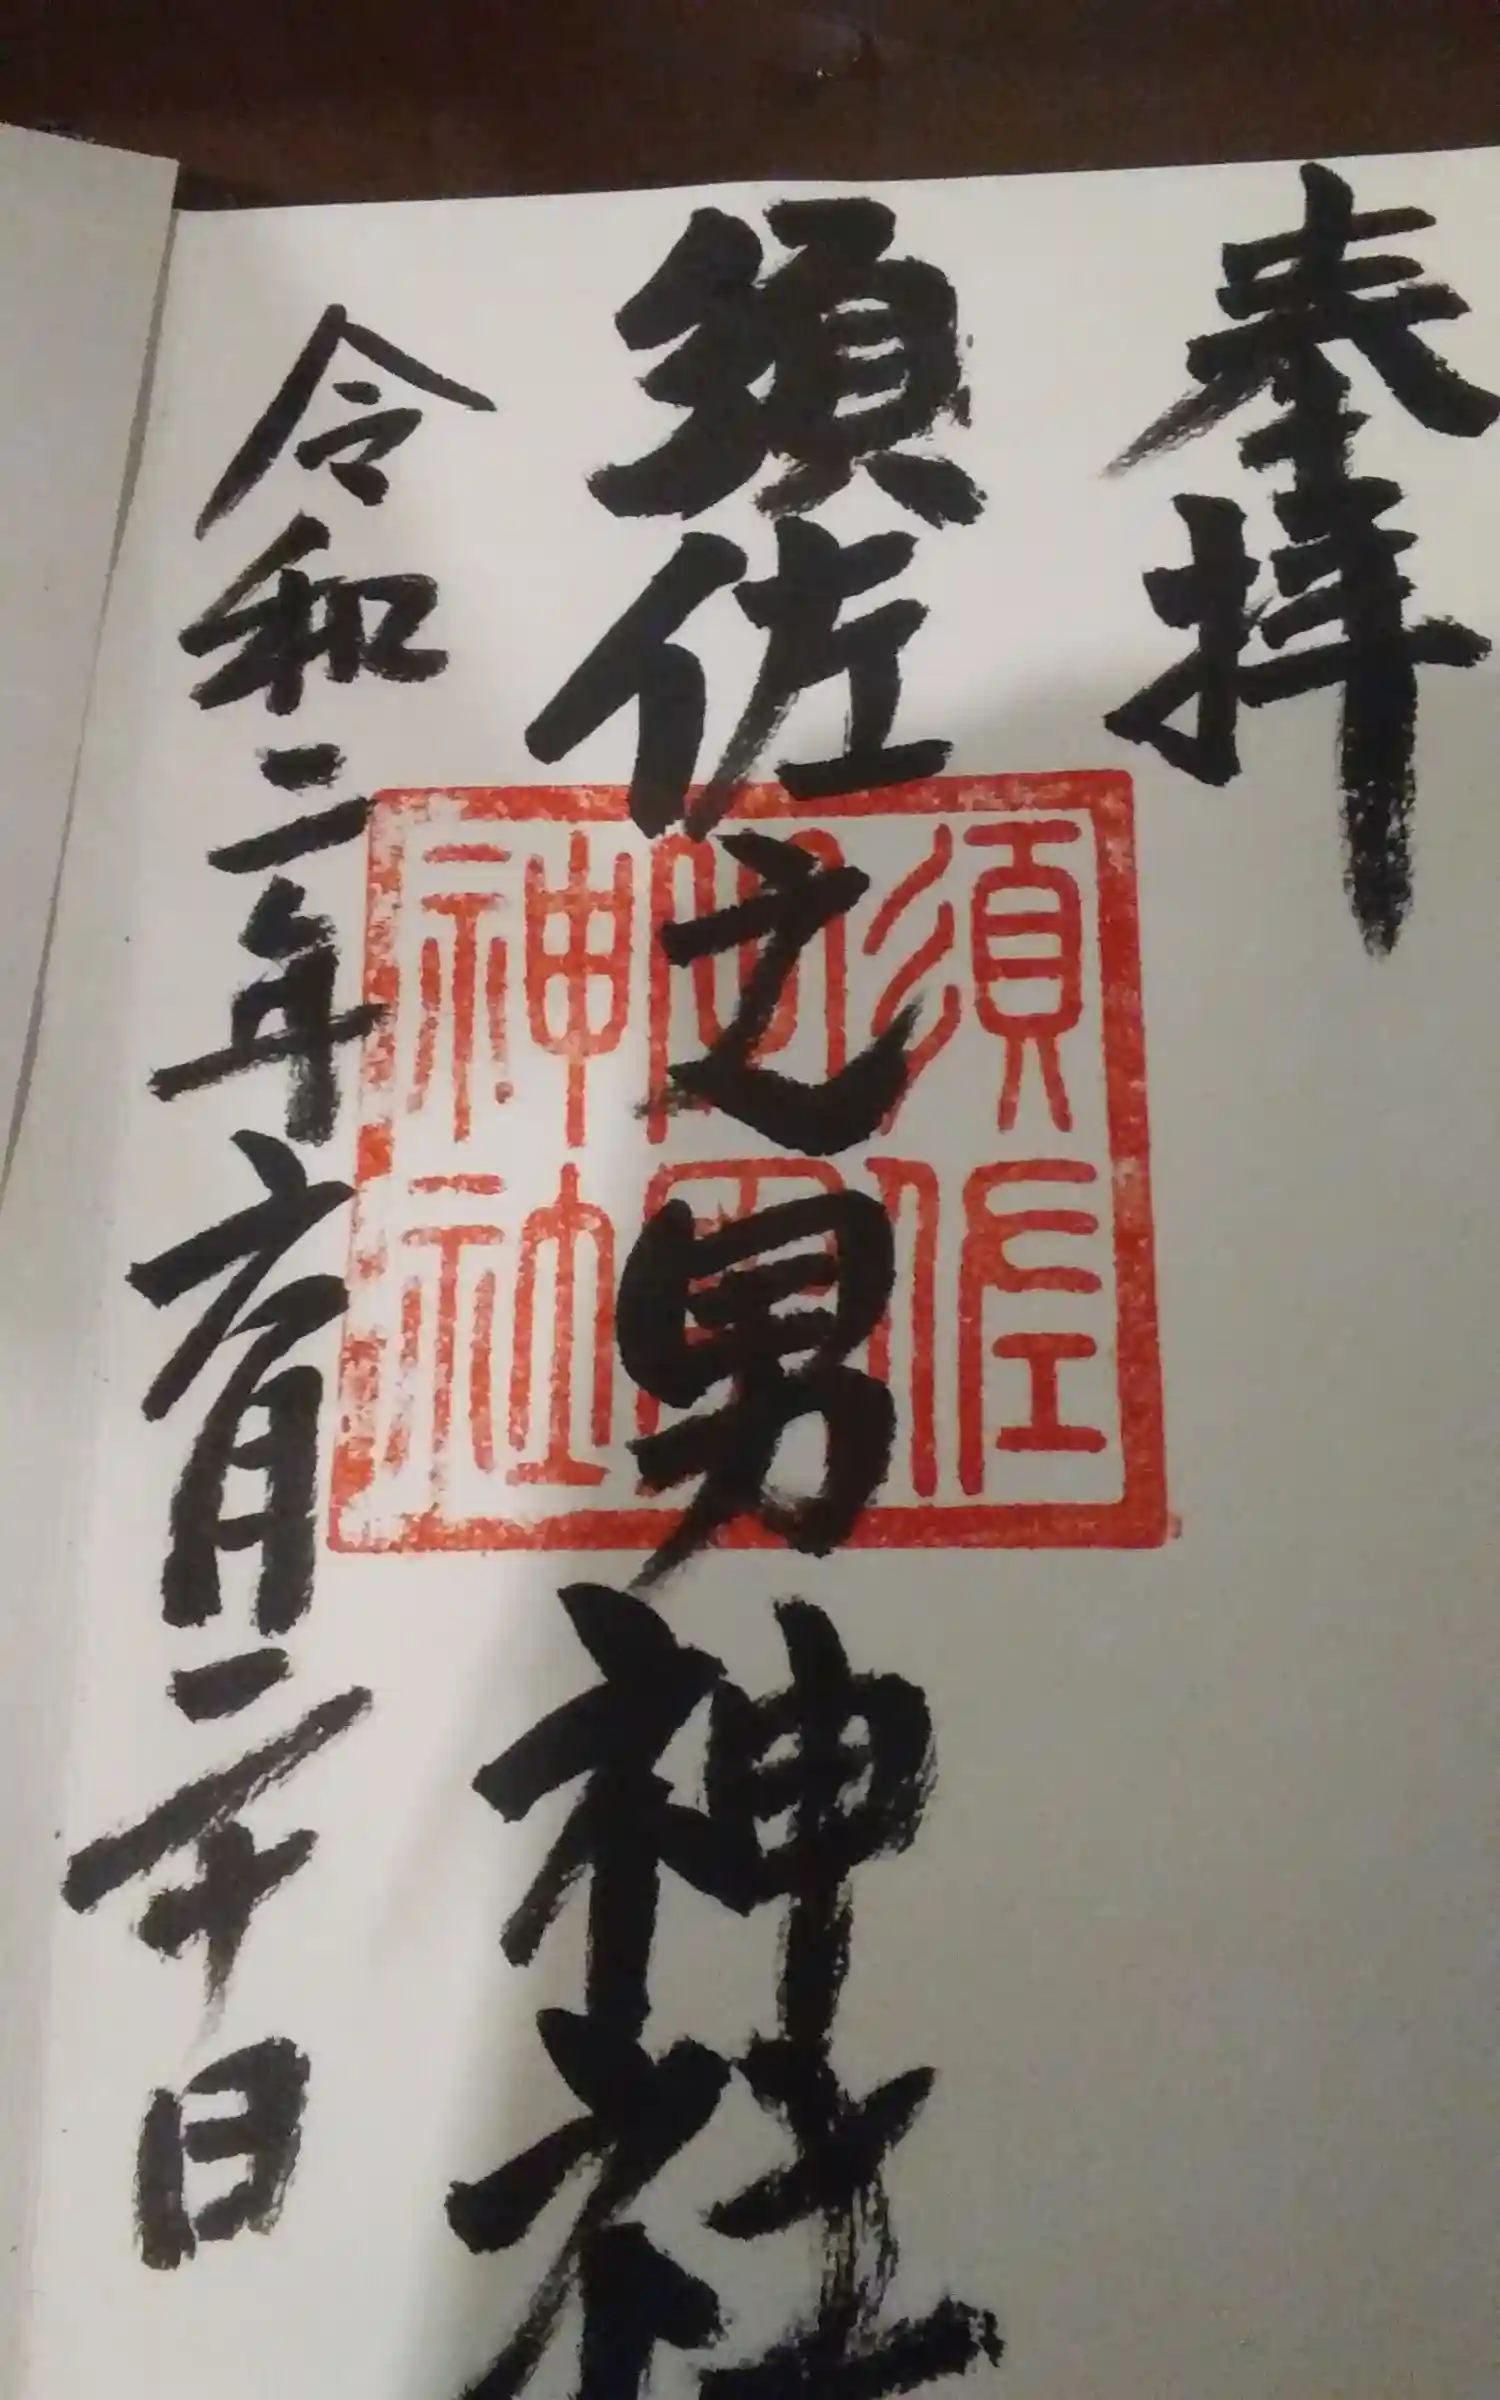 奉拝
須佐之男神社
令和二年六月二十日
須佐
男
神社